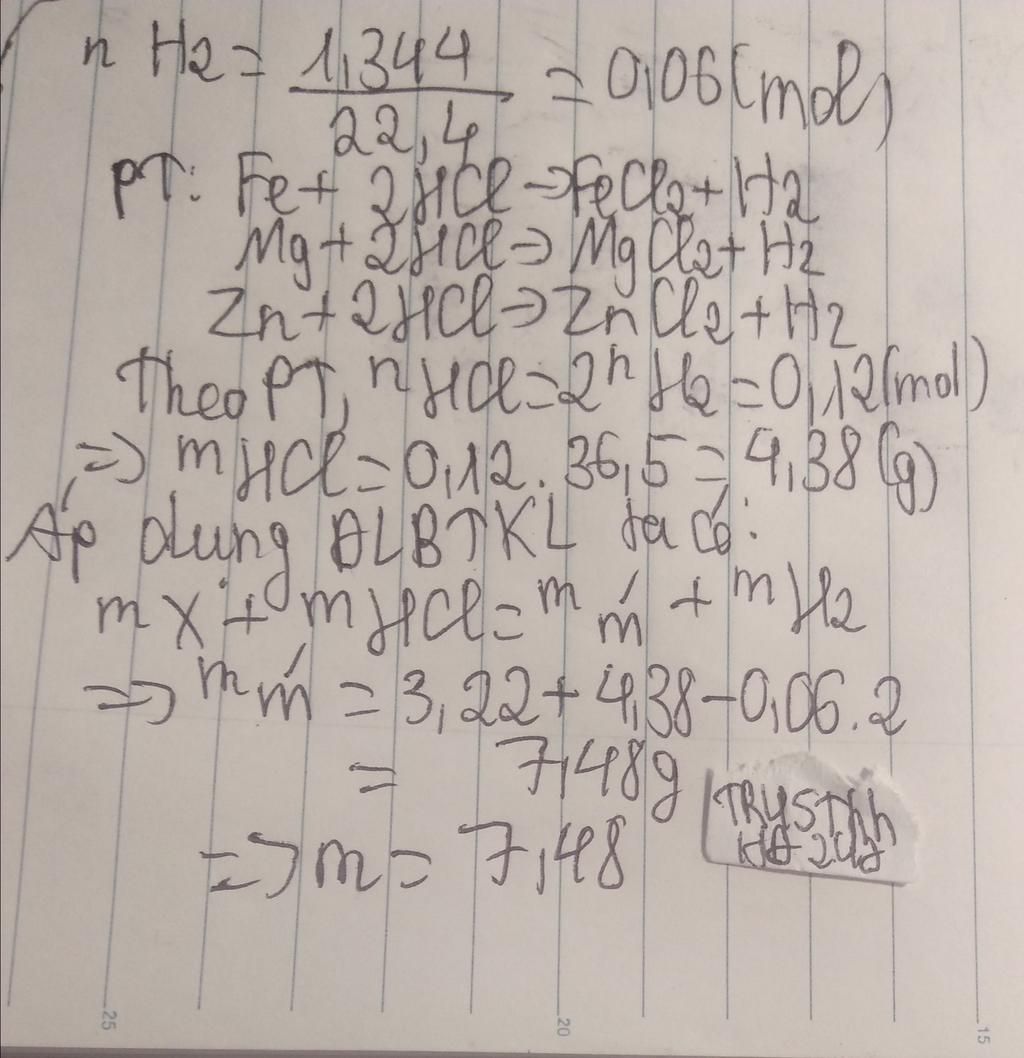 n H2 = 1,344 / 22,4 = 0,06 (mol)
PT: Fe + 2HCl → FeCl2 + H2
Mg + 2HCl → MgCl2 + H2
Zn + 2HCl → ZnCl2 + H2
Theo PT, nHCl = 2nH2 = 0,12 (mol)
=> mHCl = 0,12 . 36,5 = 4,38 (g)
Áp dụng ĐLBTKL ta có:
mX + mHCl = m ḿ + mH2
=> m ḿ = 3,22 + 4,38 - 0,06 . 2
= 7,48g
=> m = 7,48
25
20
15